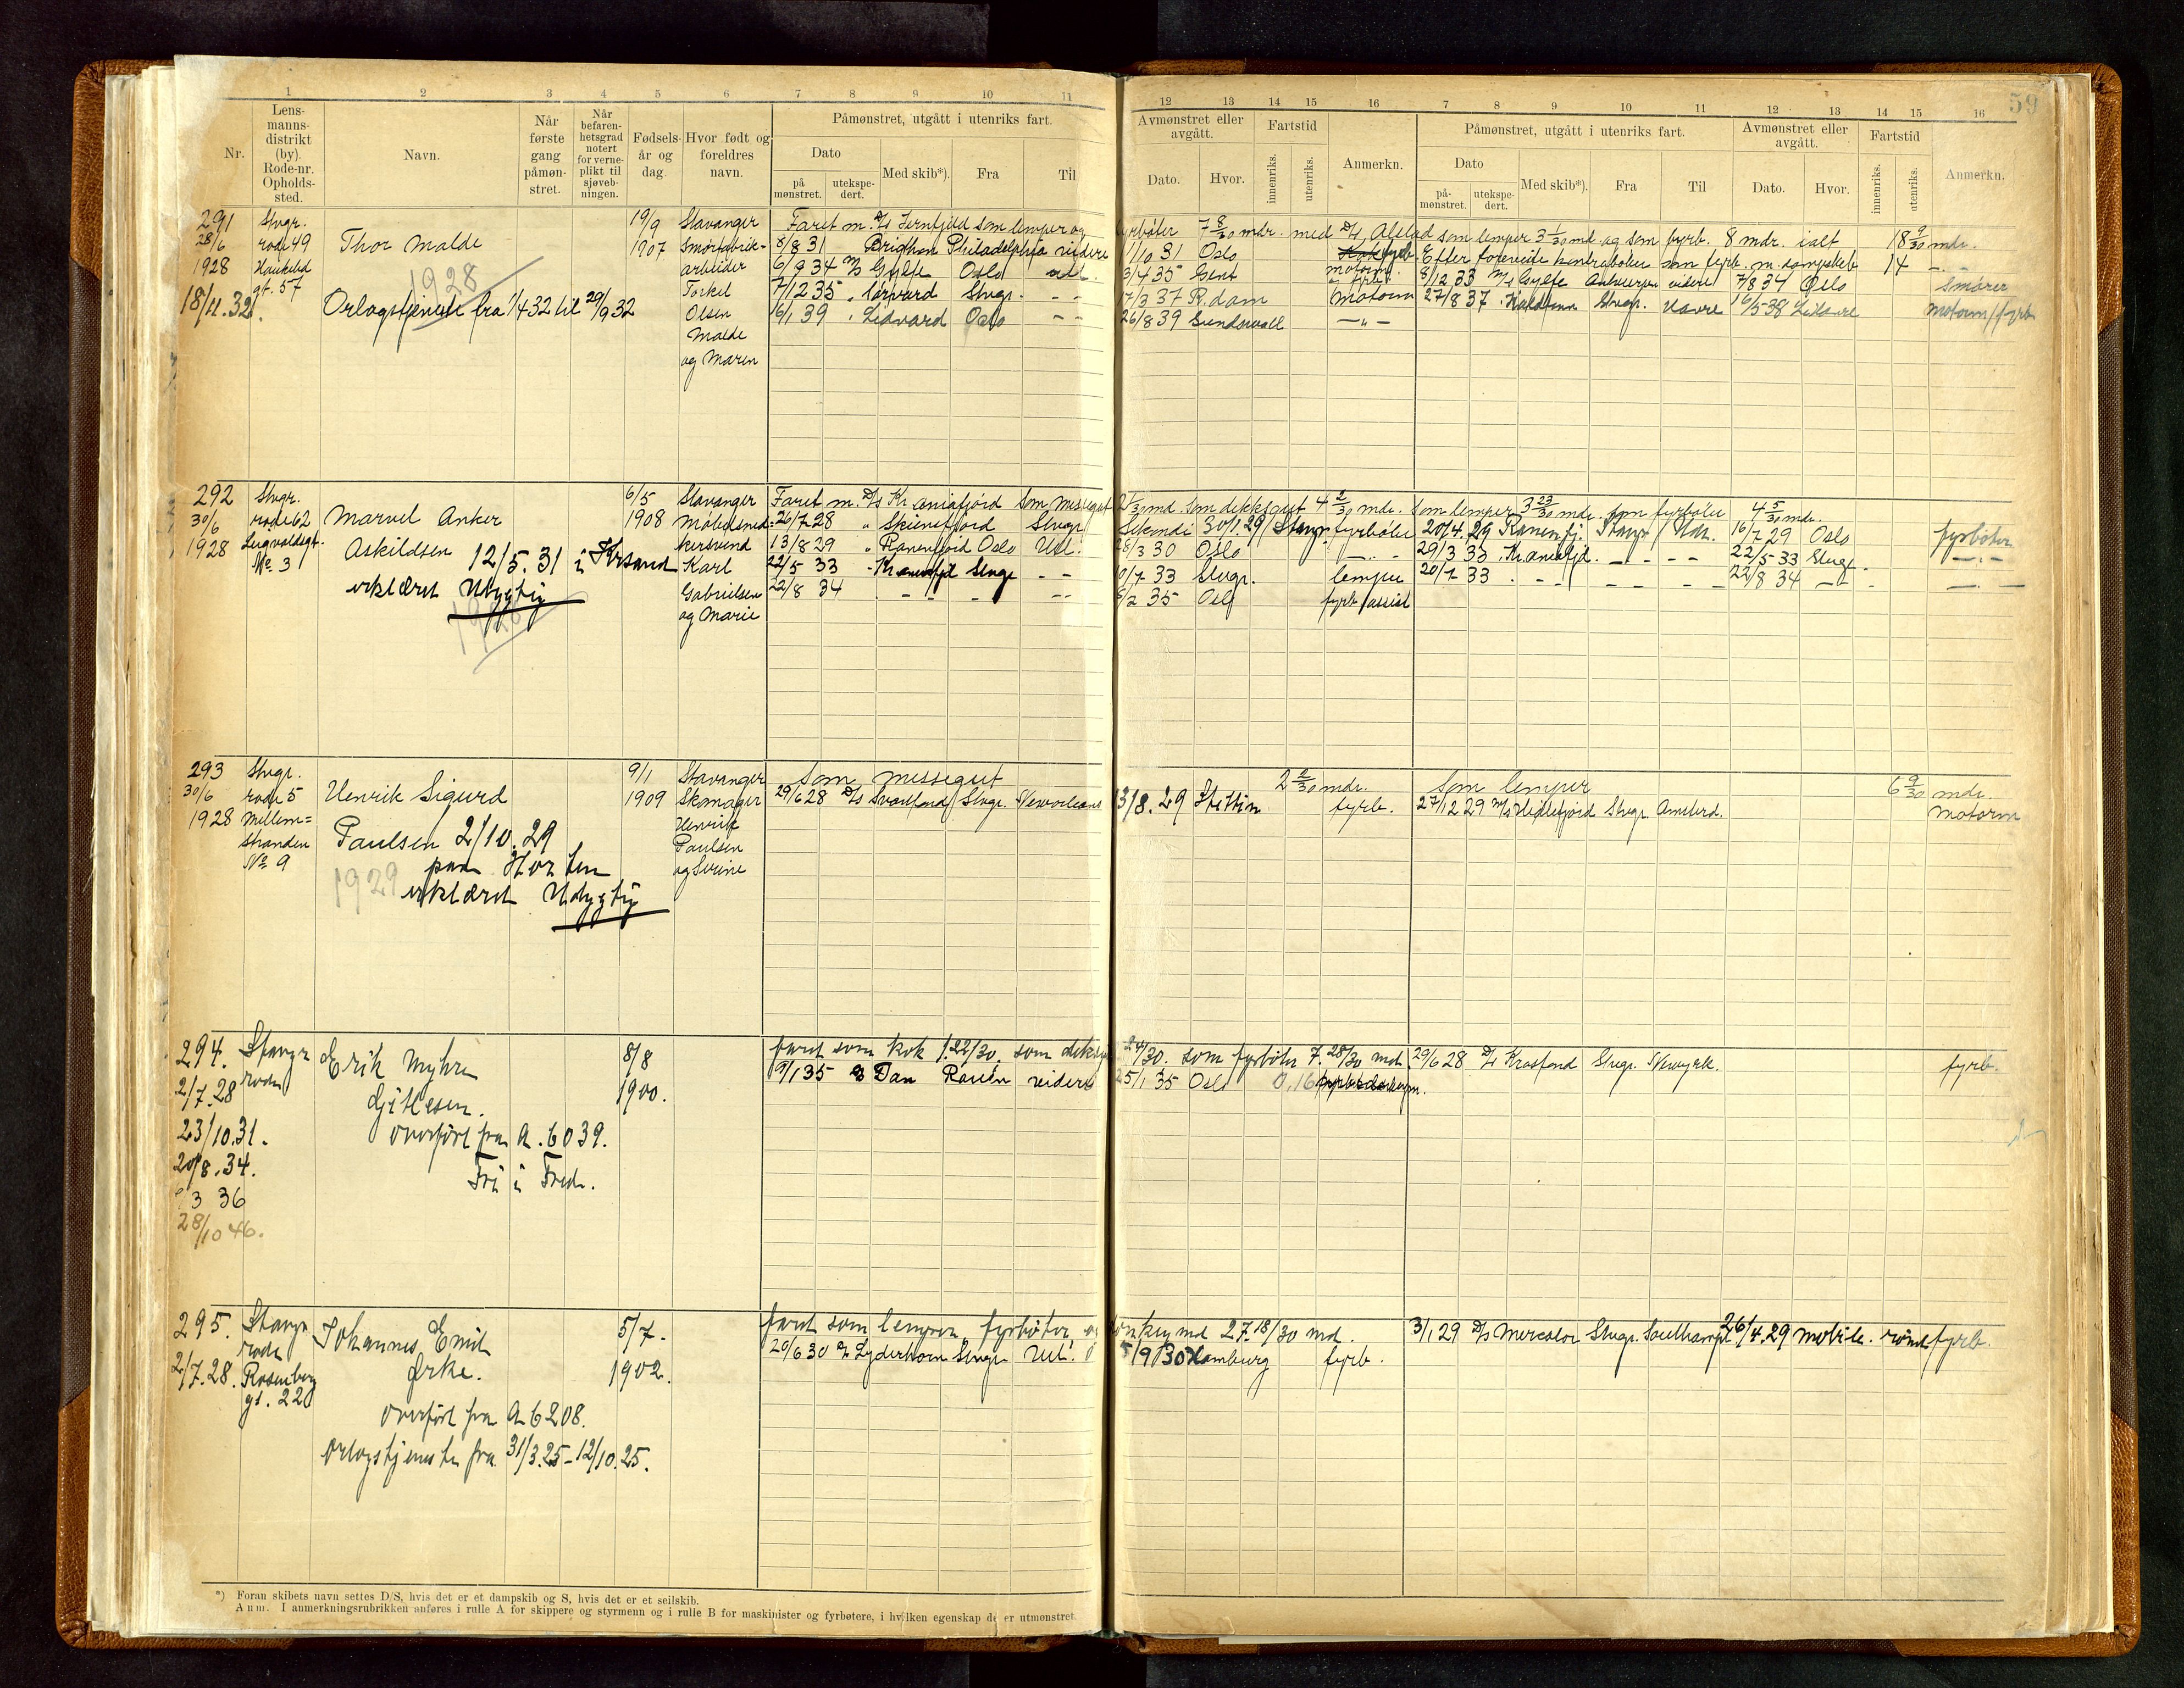 59
1 2 3 4 5 6 7 8 9 10 11
Nr.
Lens-
manns-
distrikt
(by).
Rode-nr.
Opholds-
sted.
Navn.
Når
første
gang
påmøn-
stret.
Når
befaren-
hetsgrad
notert
for verne-
plikt til
sjøveb-
ningen.
Fødsels-
år og
dag.
Hvor født og
foreldres
navn.
Påmønstret, utgått i utenriks fart.
Dato
på
mønstret.
utekspe-
dert.
Med skib*).
Fra
Til
12 13 14 15 16 7 8 9 10 11 12 13 14 15 16
Avmønstret eller
avgått.
Dato.
Hvor.
Fartstid
innenriks.
utenriks.
Anmerkn.
Påmønstret, utgått i utenriks fart.
Dato
på-
mønstret.
utekspe-
dert.
Med skib*).
Fra
Til
Avmønstret eller
avgått.
Dato.
Hvor.
Fartstid
innenriks.
utenriks.
Anmerkn.
291
28/6
1928
18/11.32.
Stvgr.
rode 49
gt. 57
Thor Malde
1928
Orlogstjeneste fra 1/4 32 til 29/9 32
19/9
1907
Stavanger
Smørfabrik-
arbeider
Torkel
Olsen
Malde
og Maren
Faret m. D/S Jernfjeld som lemper og
8/8 31 Brighton Philadelphia videre
6/9 34 M/S Gylfe Oslo utl.
7/12 35 Stvgr. - -
16/1 39 Lidvard Oslo - -
fyrbøter 7 8/30 mdr. med D/S Alstad som lemper 3 1/30 md. og som fyrb. 8 mdr. ialt 18 9/30 mdr.
1/10 31 Oslo
3/4 35 Gent
17/3 37 R.dam Motorm
26/8 39 Sundsvall —"—
8/12 33 M/S Gylfe Antwerpen videre 7/8 34 Oslo Smører
27/8 37 Stvgr. Havre 16/5-38 Motorm/fyrb
292
30/6
1928
Stvgr.
rode 62
No. 3
Marvel Anker
Askildsen 12/5.31 i Krsand
erklæret Udygtig
6/5
1908
Stavanger
Møbelsned-
kersvend
Karl
Gabrielsen
og Marie
Faret m. D/S Kr.aniafjord som messegut
26/7 28 " Skiensfjord Stvgr.
13/8 29 " Ranenfjord Oslo Utl.
22/5 33 Stvgr - -
22/8 34 - - - - -
md. som dekksgut 4 2/30 mdr. som lemper 3 23/30 mdr. som fyrbøter 4 5/30 mdr.
30/1.29 Stavgr fyrbøter 20/4.29 Ranenfj. Stavgr Utl. 16/7 29 Oslo fyrbøter
28/3 30 Oslo 29/3 33 - - 22/5-33 Stvgr.
10/7 33 Stvgr. lemper 20/7 33 - - 22/8 34
8/2 35 Oslo fyrb/assist
293
30/6
1928
Stvgr.
rode 5
Mellem-
stranden
No 9
Henrik Sigurd
Paulsen 2/10.29
paa Horten
1929 erklæret Udygtig
9/1
1909
Stavanger
Skomager
Henrik
Paulsen
og Serine
Som messegut
29/6 28 D/S Svartfond Stvgr. Neworleans
2 2/30 mdr.
13/8.29 Stettin fyrb.
Som lemper 6 9/30 mdr.
27/12 29 M/S Hidlefjord Stvgr. Amsterd. Motorm
294.
2/7.28
23/10.31.
20/8.34.
3 36
28/10 46.
Stavgr
rode
Erik Myhre
Gitlesen.
Overført fra A. 6039.
Fri i Fred.
8/8
1900.
faret som kok 1.22/30. som
9/1 35 Dan Rouen videre
24/30. som fyrbøter 7.28/30 md.
25/1 35 Oslo 0,16
29/6 28 D/S Krosfond Stvgr. Newyrk. fyrb.
295.
2/7.28.
Stavgr
rode
Rosenberg
gt. 22
Johannes Emil
Ørke.
Overført fra A 6208.
Orlogstjeneste fra 31/3.25-12/10.25.
5/7-
1902.
faret som lemper, fyrbøter og
20/6 30 Lyderhorn Stvgr Utl.
donkeymd 27.18/30 md.
5/9 30 Hamburg fyrb.
3/1 29 D/S Mercator Stvgr. Southampt 26/4.29 Mobile. rømt fyrb.
*) Foran skibets navn settes D/S, hvis det er et dampskib og S, hvis det er et seilskib.
Anm. I anmerkningsrubrikken anføres i rulle A for skippere og styrmenn og i rulle B for maskinister og fyrbøtere, i hvilken egenskap de er utmønstret.